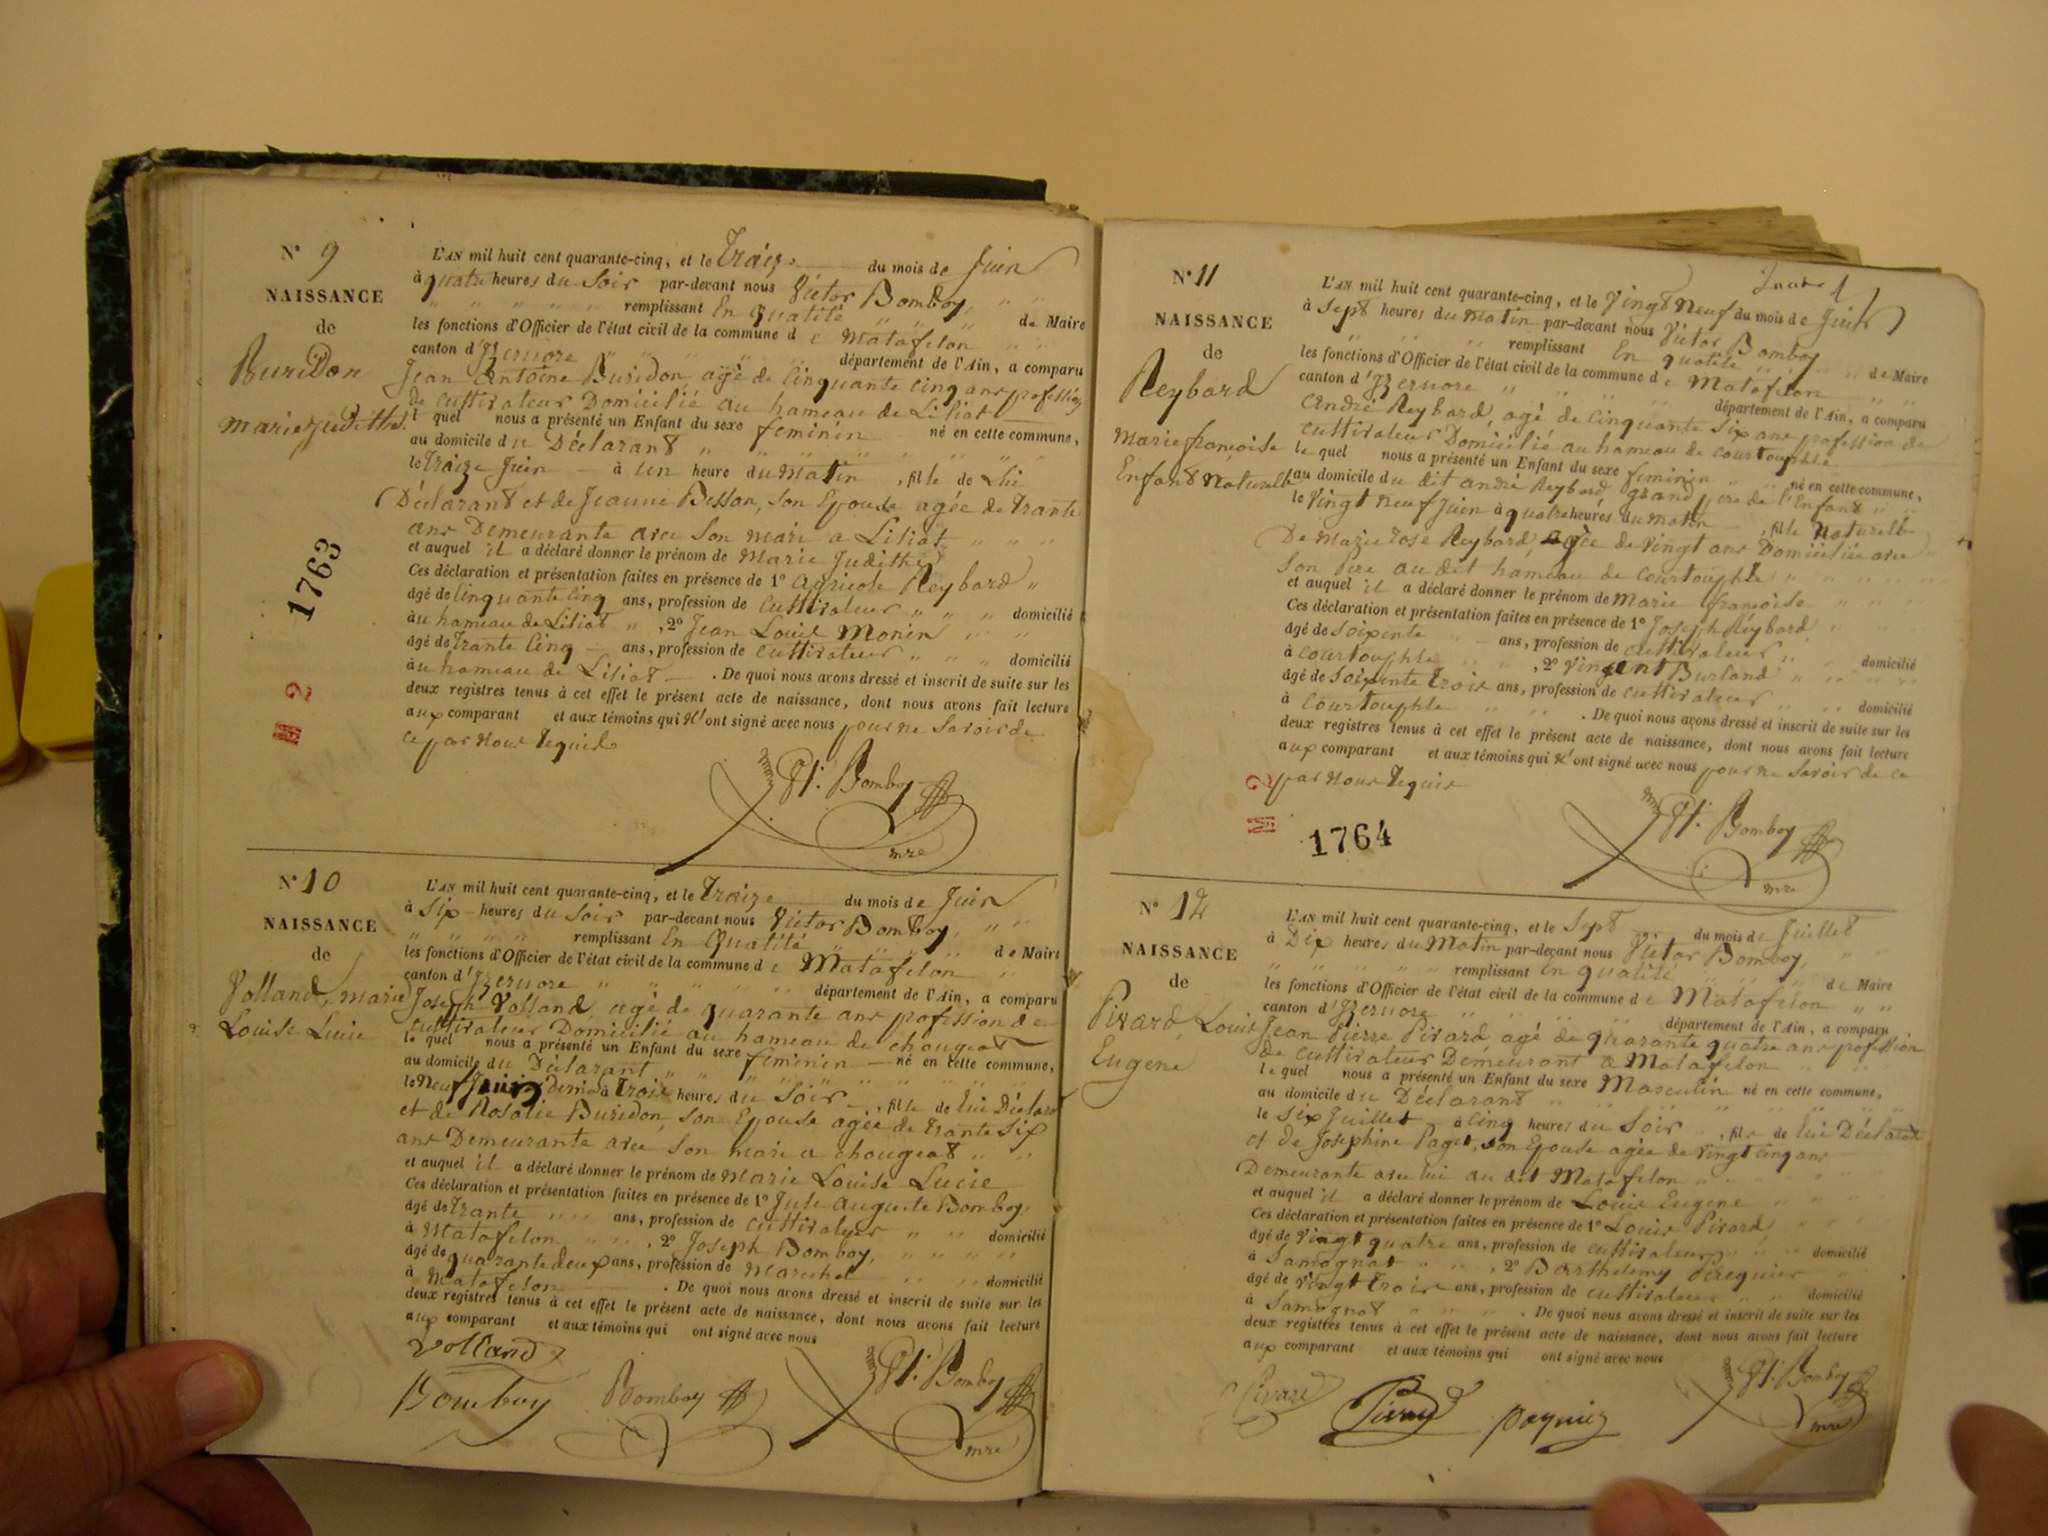 N° 9
NAISSANCE
de
Buridon
Marie Judithe
1763
2
L'AN mil huit cent quarante-cinq, et le Traize du mois de Juin
à quatre heures du Soir par-devant nous Victor Bomboy,
remplissant En Qualité de Maire
les fonctions d'Officier de l'état civil de la commune de Matafelon
canton d'Izernore département de l'Ain, a comparu
Jean Antoine Buridon, agé de Cinquante cinq ans profession
de cultivateur Domicilié au hameau de Liliat
l quel nous a présenté un Enfant du sexe feminin né en cette commune,
au domicile du Déclarant
le Traize Juin à un heure du Matin, fille de Lui
Déclarant et de Jeanne Besson, son Epouse agée de trante
ans Demeurante avec Son mari a Liliat
et auquel il a déclaré donner le prénom de Marie Judithe
Ces déclaration et présentation faites en présence de 1° Agricole Reybard
âgé de Cinquante Cinq ans, profession de Cultivateur domicilié
à au hameau de Liliat, 2° Jean Louis Monin
âgé de trante Cinq ans, profession de cultivateur domicilié
à au hameau de Liliat. De quoi nous avons dressé et inscrit de suite sur les
deux registres tenus à cet effet le présent acte de naissance, dont nous avons fait lecture
aux comparant et aux témoins qui N'ont signé avec nous pour ne Savoir de
ce par Nous requis
Vt. Bomboy
mre
N° 10
NAISSANCE
de
Volland, Marie
Louise Lucie
L'AN mil huit cent quarante-cinq, et le Traize du mois de Juin
à Six heures du Soir par-devant nous Victor Bomboy,
remplissant En Qualité de Maire
les fonctions d'Officier de l'état civil de la commune de Matafelon
canton d'Izernore département de l'Ain, a comparu
Joseph Volland, agé de quarante ans profession de
Cultivateur Domicilié au hameau de Chougeat
le quel nous a présenté un Enfant du sexe feminin né en cette commune,
au domicile du Déclarant
le Neuf Juin à Trois heures du Soir, fille de lui Déclarant
et de Rosalie Buridon, son Epouse agée de trante Six
ans Demeurante avec son mari a Chougeat
et auquel il a déclaré donner le prénom de Marie Louise Lucie
Ces déclaration et présentation faites en présence de 1° Jule Auguste Bomboy,
âgé de Trante ans, profession de Cultivateur domicilié
à Matafelon, 2° Joseph Bomboy,
âgé de quarante deux ans, profession de Marechal
à Matafelon domicilié. De quoi nous avons dressé et inscrit de suite sur les
deux registres tenus à cet effet le présent acte de naissance, dont nous avons fait lecture
aux comparant et aux témoins qui ont signé avec nous
Volland
Bomboy Bomboy Vt. Bomboy
mre
N° 11
NAISSANCE
de
Reybard
Marie françoise
Enfant Naturelle
L'AN mil huit cent quarante-cinq, et le Vingt Neuf du mois de Juin
à Sept heures du Matin par-devant nous Victor Bomboy
remplissant En qualité de Maire
les fonctions d'Officier de l'état civil de la commune de Matafelon
canton d'Izernore département de l'Ain, a comparu
André Reybard, agé de Cinquante Six ans profession de
Cultivateur Domicilié au hameau de Courtouphle
le quel nous a présenté un Enfant du sexe feminin né en cette commune,
au domicile du dit andré Reybard grand père de l'Enfant
le Vingt Neuf Juin à quatre heures du Matin, fille Naturelle
De Marie Rose Reybard, agée de Vingt ans Domiciliée avec
Son Pere au dit hameau de Courtouphle
et auquel il a déclaré donner le prénom de Marie françoise
Ces déclaration et présentation faites en présence de 1° Joseph Reybard
âgé de Soixente ans, profession de cultivateur domicilié
à Courtouphle, 2° Vincent Burland
âgé de Soixente trois ans, profession de Cultivateur domicilié
à Courtouphle. De quoi nous avons dressé et inscrit de suite sur les
deux registres tenus à cet effet le présent acte de naissance, dont nous avons fait lecture
aux comparant et aux témoins qui N'ont signé avec nous pour ne Savoir de ce
par Nous requis
2
1764
Vt. Bomboy
mre
N° 12
NAISSANCE
de
Pivard, Louis
Eugene
L'AN mil huit cent quarante-cinq, et le Sept du mois de Juillet
à Dix heures du Matin par-devant nous Victor Bomboy,
remplissant En qualité de Maire
les fonctions d'Officier de l'état civil de la commune de Matafelon
canton d'Izernore département de l'Ain, a comparu
Jean Pierre Pivard agé de quarante quatre ans profession
de cultivateur Demeurant a Matafelon
le quel nous a présenté un Enfant du sexe Masculin né en cette commune,
au domicile du Déclarant
le Six Juillet à Cinq heures du Soir, fils de lui Déclarant
et de Josephine Paget, son Epouse agée de Vingt Cinq ans
Demeurante avec lui au dit Matafelon
et auquel il a déclaré donner le prénom de Louis Eugene
Ces déclaration et présentation faites en présence de 1° Louis Pivard
âgé de Vingt quatre ans, profession de cultivateur domicilié
à Samognat, 2° Barthelemy
âgé de Vingt trois ans, profession de cultivateur domicilié
à Samognat. De quoi nous avons dressé et inscrit de suite sur les
deux registres tenus à cet effet le présent acte de naissance, dont nous avons fait lecture
aux comparant et aux témoins qui ont signé avec nous
Pivard Pivard Vt. Bomboy
mre